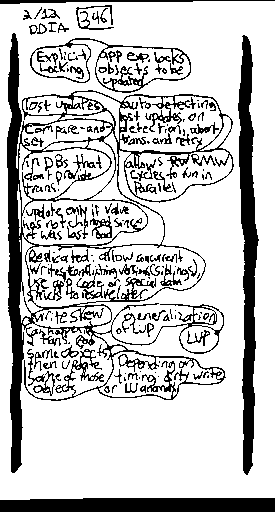 2/12 346
DDIA
Explicit app exp. locks
Locking objects to be
updated
lost updates auto-detecting
Compare-and- lost updates, on
set detection, abort
trans. and retry
in DBs that allows RW/RMW
don't provide cycles to run in
trans. Parallel
update only if value
has not changed since
it was last read
Replicated: allow concurrent
writes, conflicting versions (siblings),
use app code or special data
structs to resolve later
write skew generalization
can happen if of LUP
2 trans. read LUP
same objects,
then update Depending on
some of those timing: dirty write
objects or LU anomaly